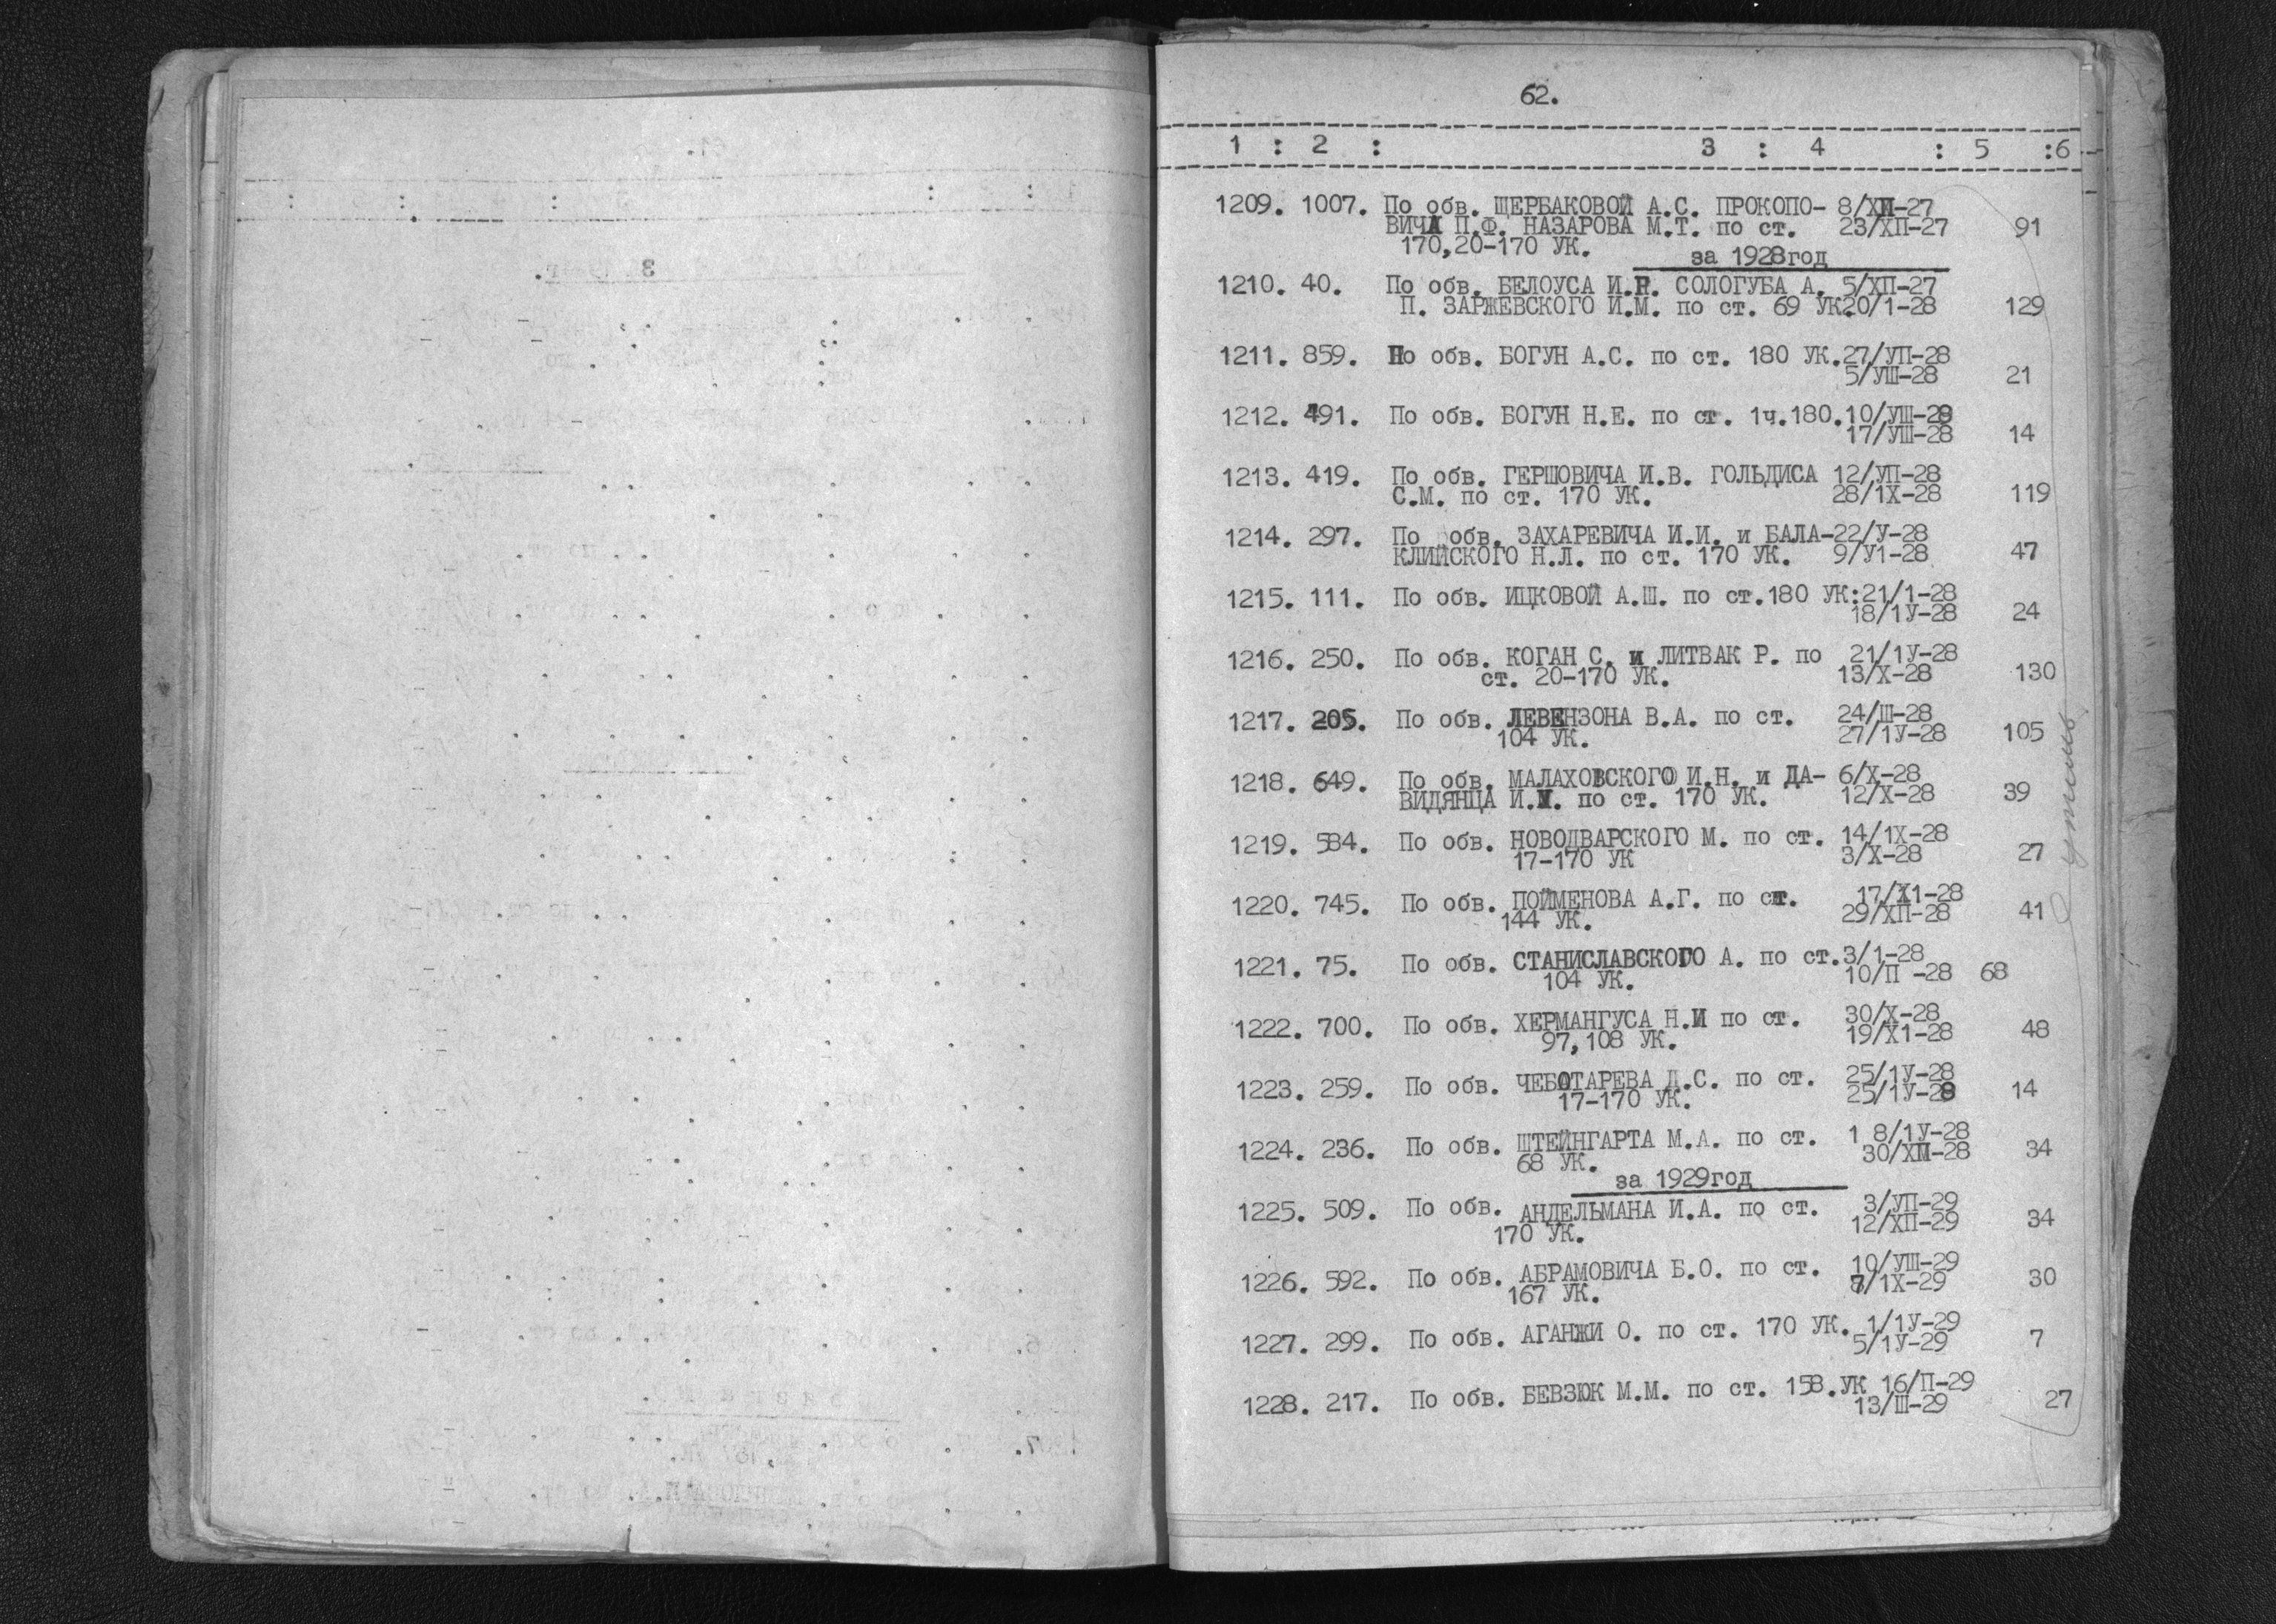 62.
1 : 2 : 3 : 4 : 5 :6
1209. 1007. По обв. ЩЕРБАКОВОЙ А.С. ПРОКОПО- 8/ХП-27
ВИЧА П.Ф. НАЗАРОВА М.Т. по ст. 23/ХП-27 91
170,20-170 УК.
за 1928год
1210. 40. По обв. БЕЛОУСА И.Р. СОЛОГУБА А. 5/ХП-27
П. ЗАРЖЕВСКОГО И.М. по ст. 69 УК.20/1-28 129
1211. 859. По обв. БОГУН А.С. по ст. 180 УК.27/УП-28
5/УШ-28 21
1212. 491. По обв. БОГУН Н.Е. по ст. 1ч.180.10/УШ-28
17/УШ-28 14
1213. 419. По обв. ГЕРШОВИЧА И.В. ГОЛЬДИСА 12/УП-28
С.М. по ст. 170 УК. 28/1Х-28 119
1214. 297. По обв. ЗАХАРЕВИЧА И.И. и БАЛА-22/У-28
КЛИЙСКОГО Н.Л. по ст. 170 УК. 9/У1-28 47
1215. 111. По обв. ИЦКОВОЙ А.Ш. по ст.180 УК:21/1-28
18/1У-28 24
1216. 250. По обв. КОГАН С. и ЛИТВАК Р. по 21/1У-28
ст. 20-170 УК. 13/Х-28 130
1217. 205. По обв. ЛЕВЕНЗОНА В.А. по ст. 24/Ш-28
104 УК. 27/1У-28 105
1218. 649. По обв. МАЛАХОВСКОГО И.Н. и ДА- 6/Х-28
ВИДЯНЦА И. по ст. 170 УК. 12/Х-28 39
1219. 584. По обв. НОВОДВАРСКОГО М. по ст. 14/1Х-28
17-170 УК 3/Х-28 27
1220. 745. По обв. ПОЙМЕНОВА А.Г. по ст. 17/Х1-28
144 УК. 29/ХП-28 41
1221. 75. По обв. СТАНИСЛАВСКОГО А. по ст.3/1-28
104 УК. 10/П -28 68
1222. 700. По обв. ХЕРМАНГУСА Н.И по ст. 30/Х-28
97,108 УК. 19/Х1-28 48
1223. 259. По обв. ЧЕБОТАРЕВА Д.С. по ст. 25/1У-28
17-170 УК. 25/1У-28 14
1224. 236. По обв. ШТЕЙНГАРТА М.А. по ст. 1 8/1У-28
68 УК. 30/ХП-28 34
за 1929год
1225. 509. По обв. АНДЕЛЬМАНА И.А. по ст. 3/УП-29
170 УК. 12/ХП-29 34
1226. 592. По обв. АБРАМОВИЧА Б.О. по ст. 10/УШ-29
167 УК. 7/1Х-29 30
1227. 299. По обв. АГАНЖИ О. по ст. 170 УК. 1/1У-29
5/1У-29 7
1228. 217. По обв. БЕВЗЮК М.М. по ст. 158.УК 16/П-29
13/Ш-29 27